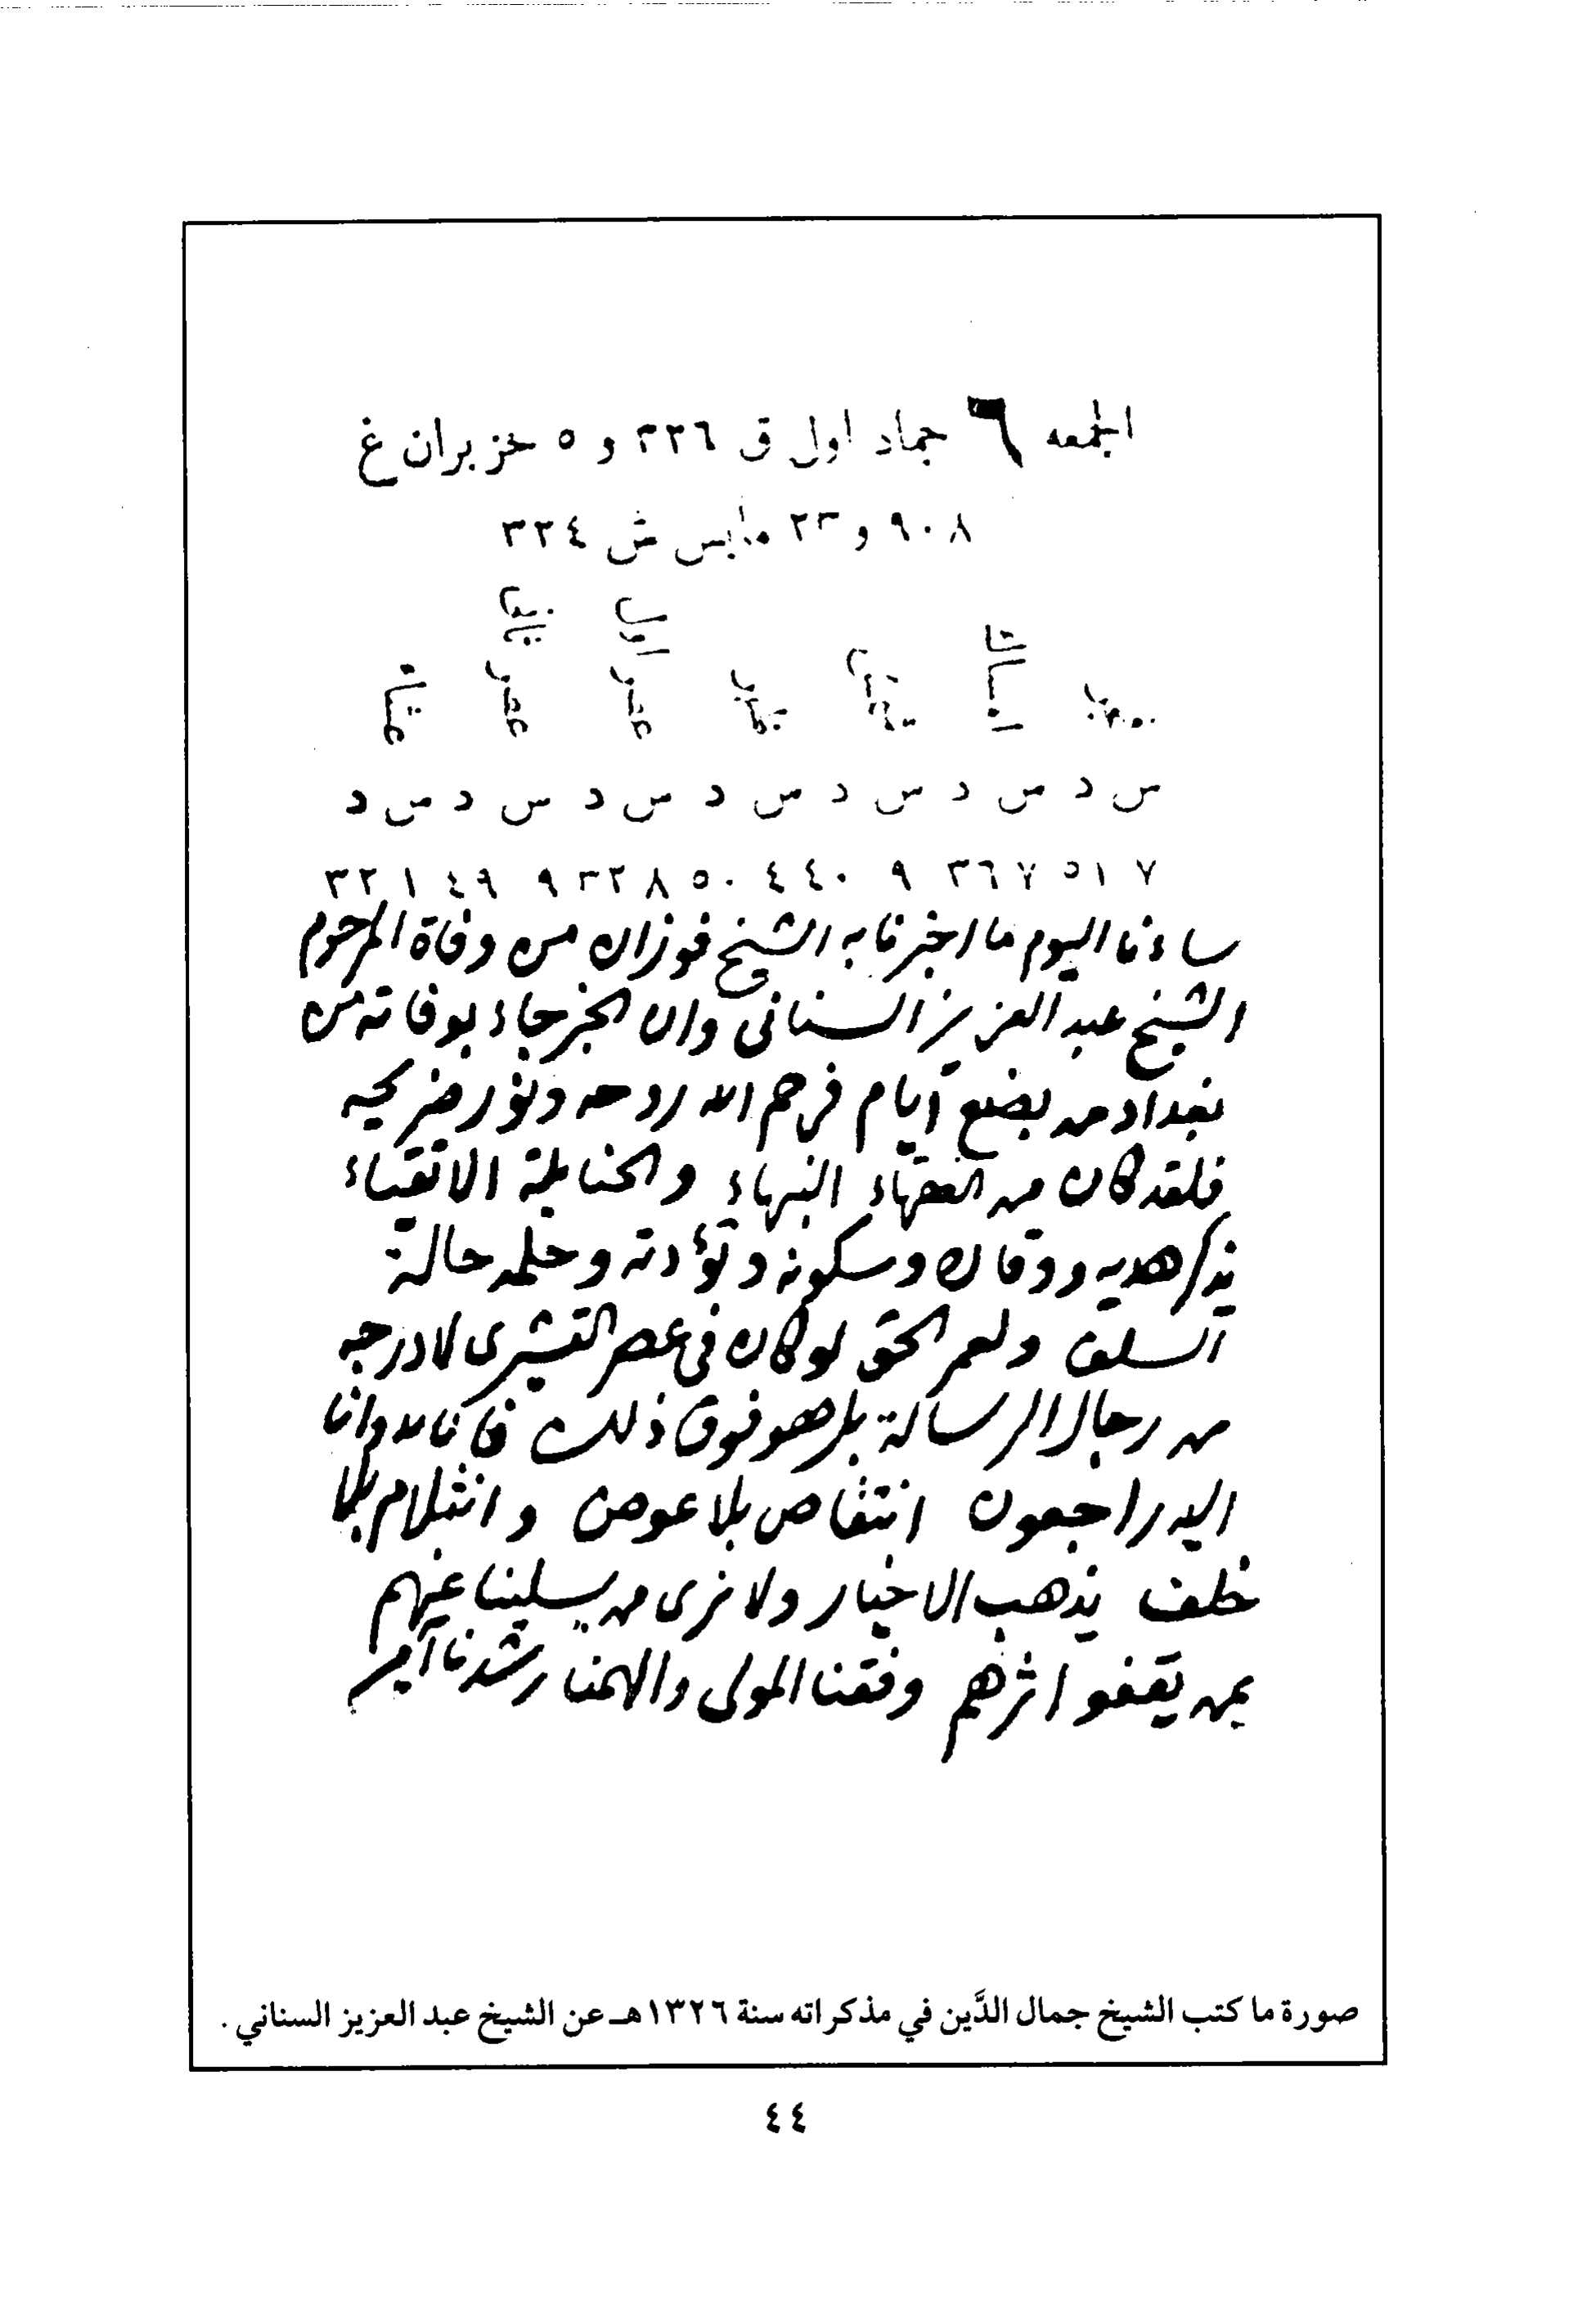 الجمعه ٦ جماد اول ق ٣٢٦ و ٥ حزيران غ
٩٠٨ و ٢٣ مايس ش ٣٢٤
س د س د س د س د س د س د س د
٧ ٥١ ٧ ٣٦ ٩ ٤٤٠ ٥٠ ٨ ٣٢ ٩ ٤٩ ١ ٣٢
ساءنا اليوم ما اخبرنا به الشيخ فوزان من وفاة المرحوم
الشيخ عبد العزيز السنانى وان الخبر جاء بوفاته من
بغداد من بضع أيام فرحم الله روحه ونور ضريحه
فلقد كان من الفقهاء النبهاء والحنابلة الاتقياء
يذكر هديه ووقاره وسكونه وتؤدته وحلمه حالة
السلف ولعمر الحق لو كان فى عصر القشيرى لادرجه
من رجال الرسالة بل هو فوق ذلك فانا لله وانا
اليه راجعون انتقاص بلا عوض وانثلام بلا
خلف يذهب الاخيار ولا نرى من يسلينا عنهم
بمن يقفو اثرهم وفقنا المولى والهمنا رشدنا آمين
صورة ما كتب الشيخ جمال الدَّين في مذكراته سنة ١٣٢٦هـ عن الشيخ عبد العزيز السناني .
٤٤